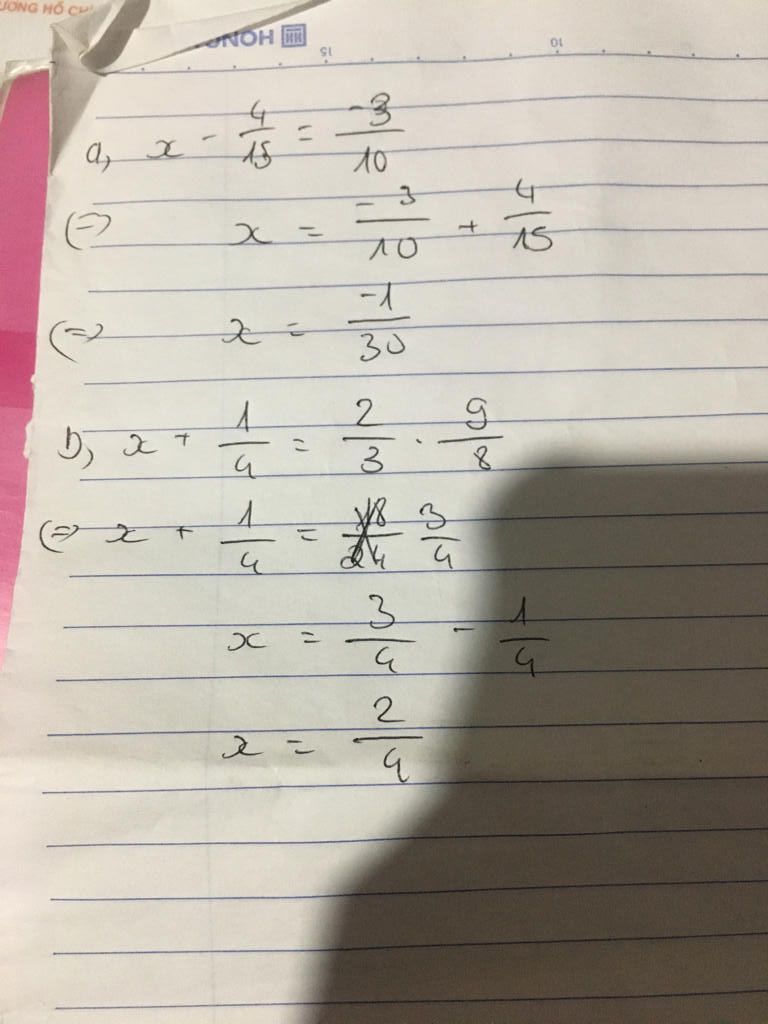 ƯƠNG HỒ CHÍ
HON
15 10
a, x - 4/15 = -3/10
(=) x = -3/10 + 4/15
(=) x = -1/30
b, x + 1/4 = 2/3 . 9/8
(=) x + 1/4 = 18/24 3/4
x = 3/4 - 1/4
x = 2/4